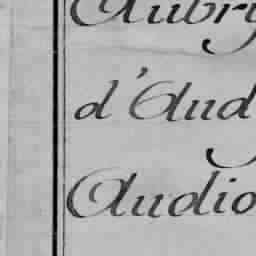 Aubry
d'Aud
Audio